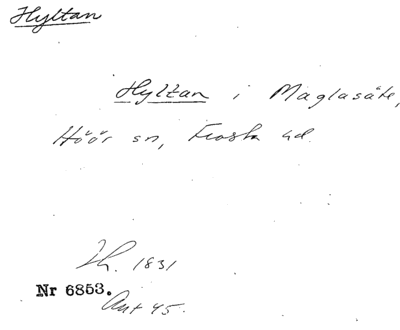 Hyltan
Hyltan i Maglasäte,
Höör sn, Frosta hd.
1831
Nr 6853.
45.